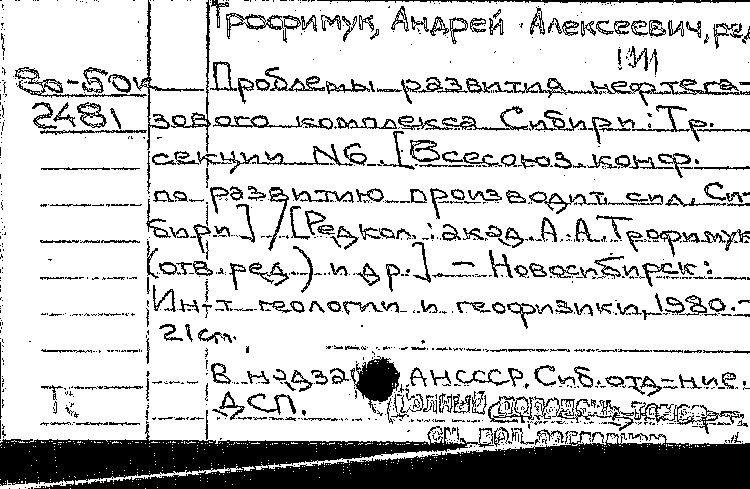 Трофимук, Андрей Алексеевич, ред
80-50к
Проблемы развития нефтега-
2481
зового комплекса Сибири: Тр.
секции N6. [Всесоюз. конф.
по развитию производит. сил. Си-
бири] / [Редкол.: акад. А.А. Трофимук
(отв. ред.) и др.] – Новосибирск:
Ин-т геологии и геофизики, 1980.–
21 см.
В надзаг АНСССР. Сиб. отд-ние.
ДСП.
Полный перечень
см.